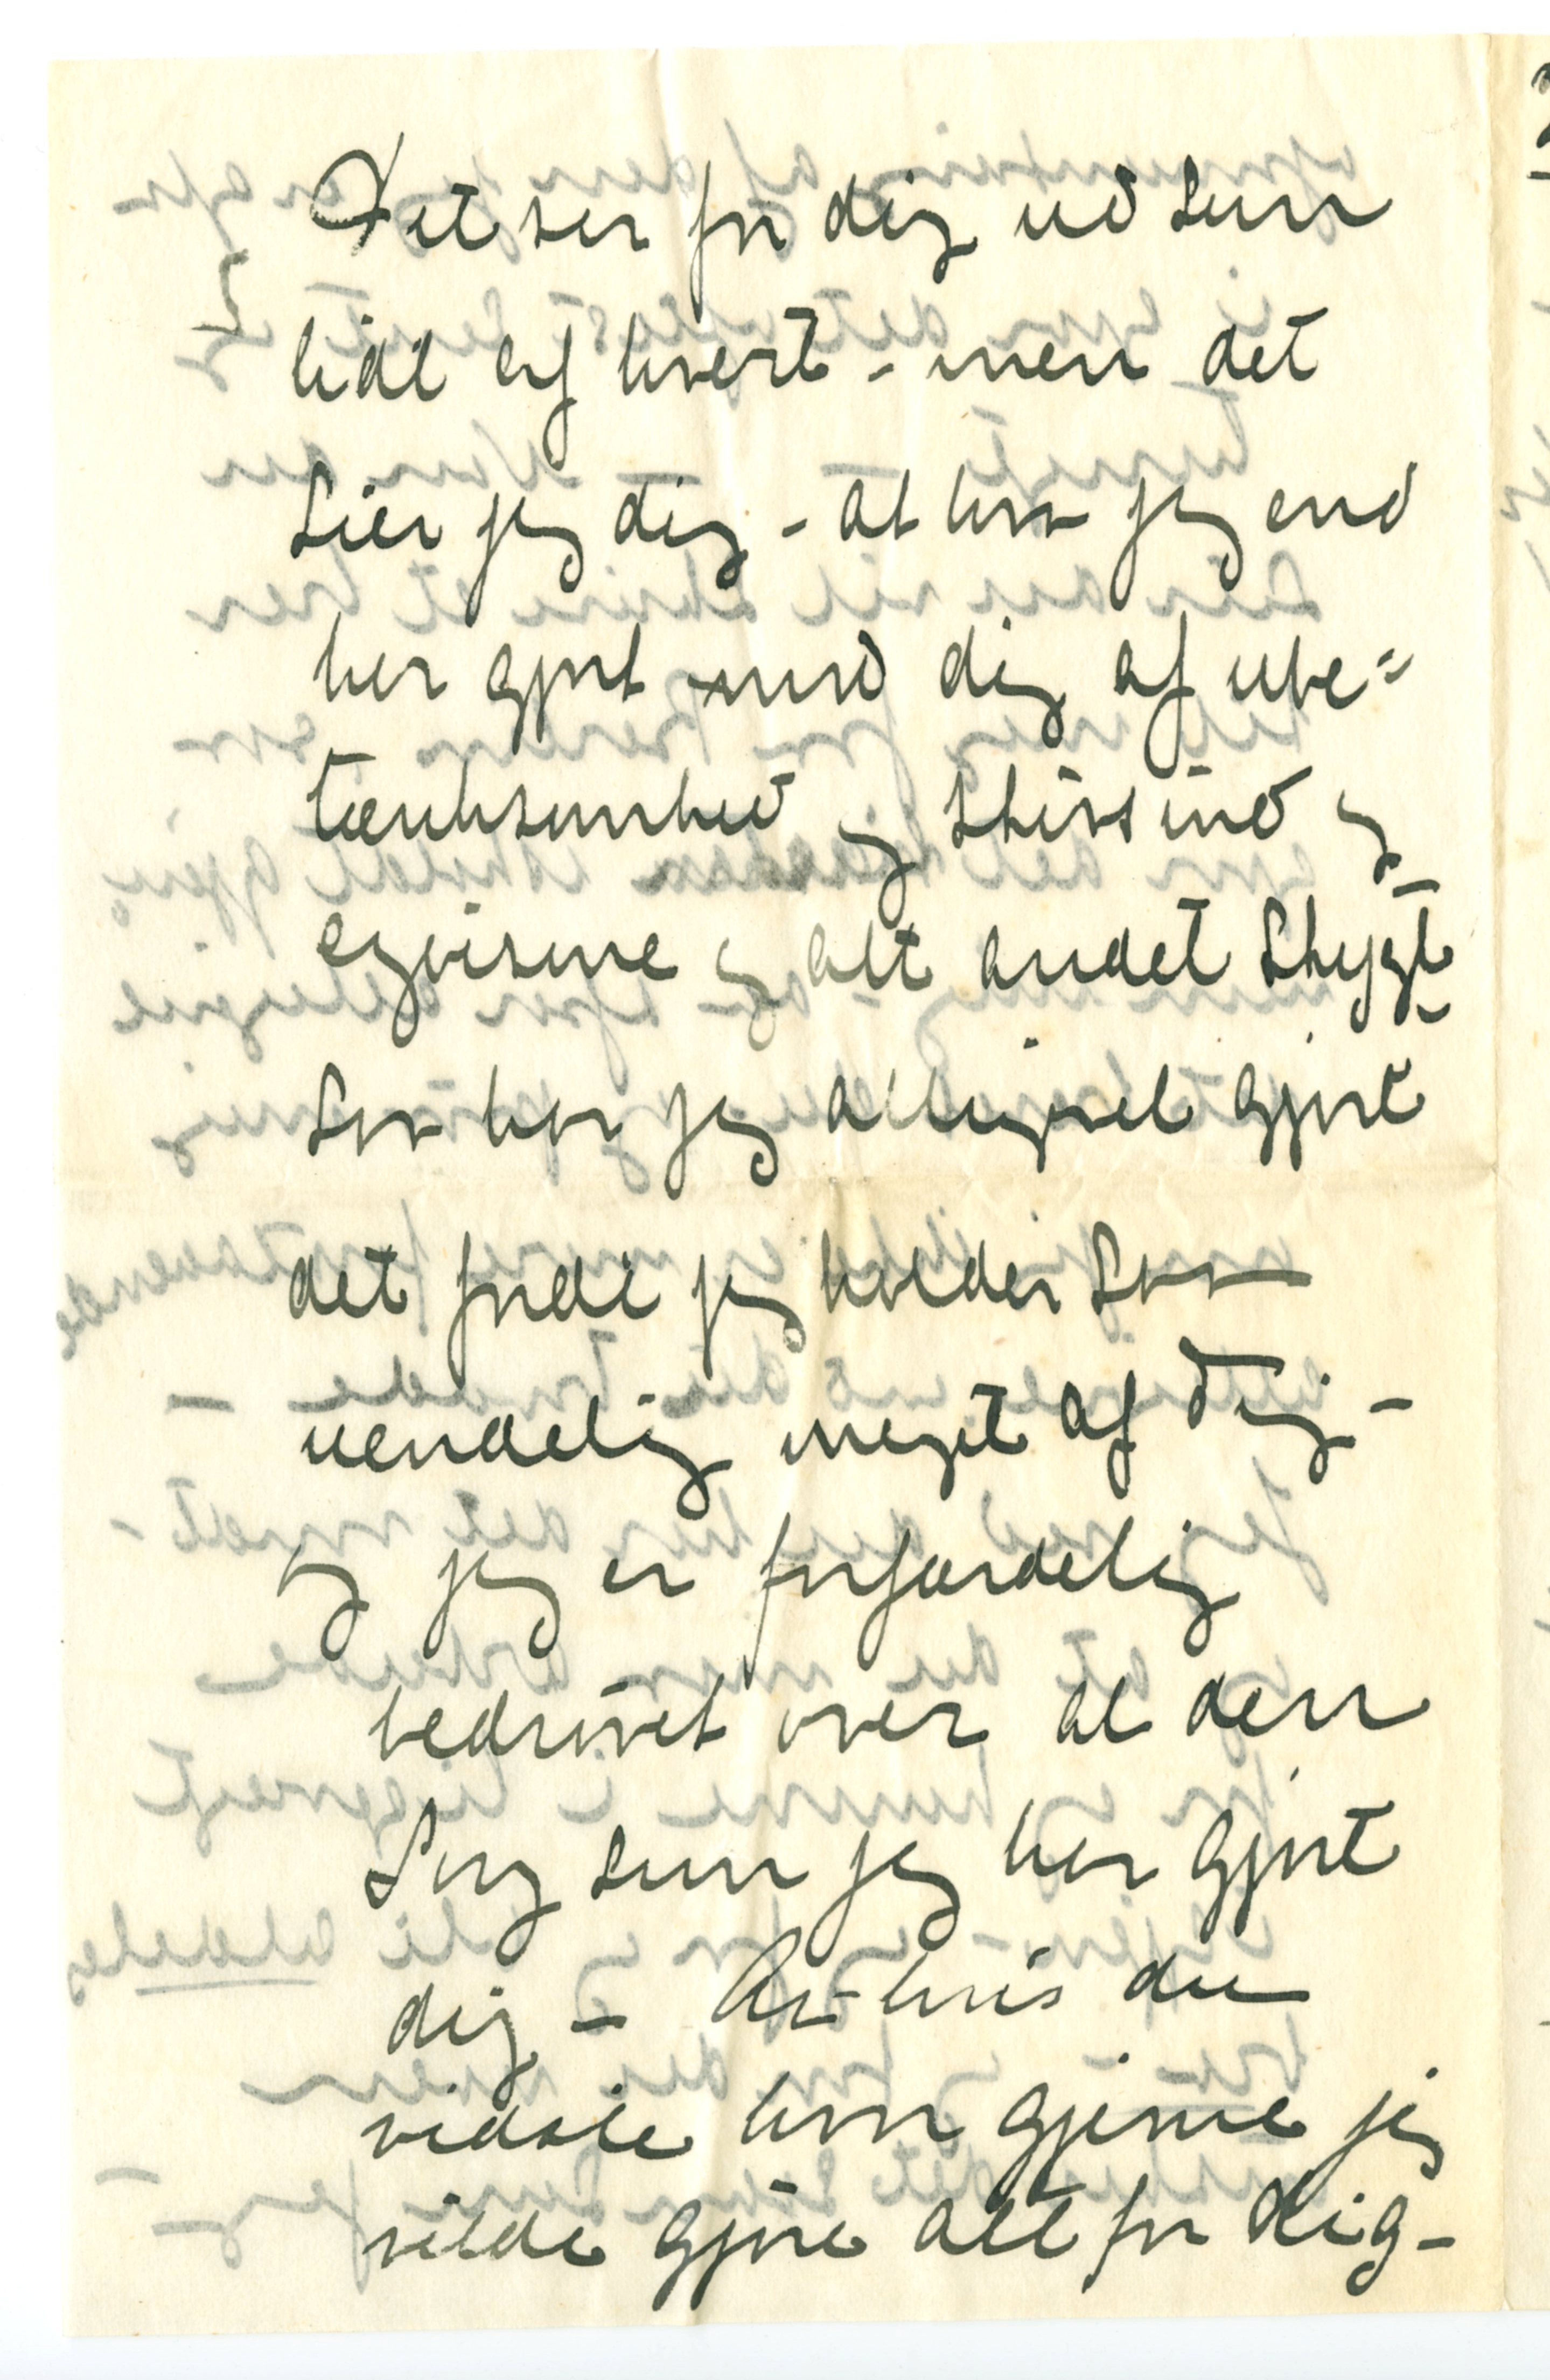 Det ser for dig ud som
lidt af hvert - men det
sier jeg dig - at hva jeg end
har gjort mod dig af ube=
tænksomhed og stivsind og
egoisme og alt andet stygt -
saa har jeg alligevel gjort
det fordi jeg holder saa
uendelig meget af dig -
og jeg er forfærdelig
bedrøvet over al den
Sorg som jeg har gjort
dig - Aa hvis du
vidste hvor gjerne jeg
vilde gjøre alt for dig -